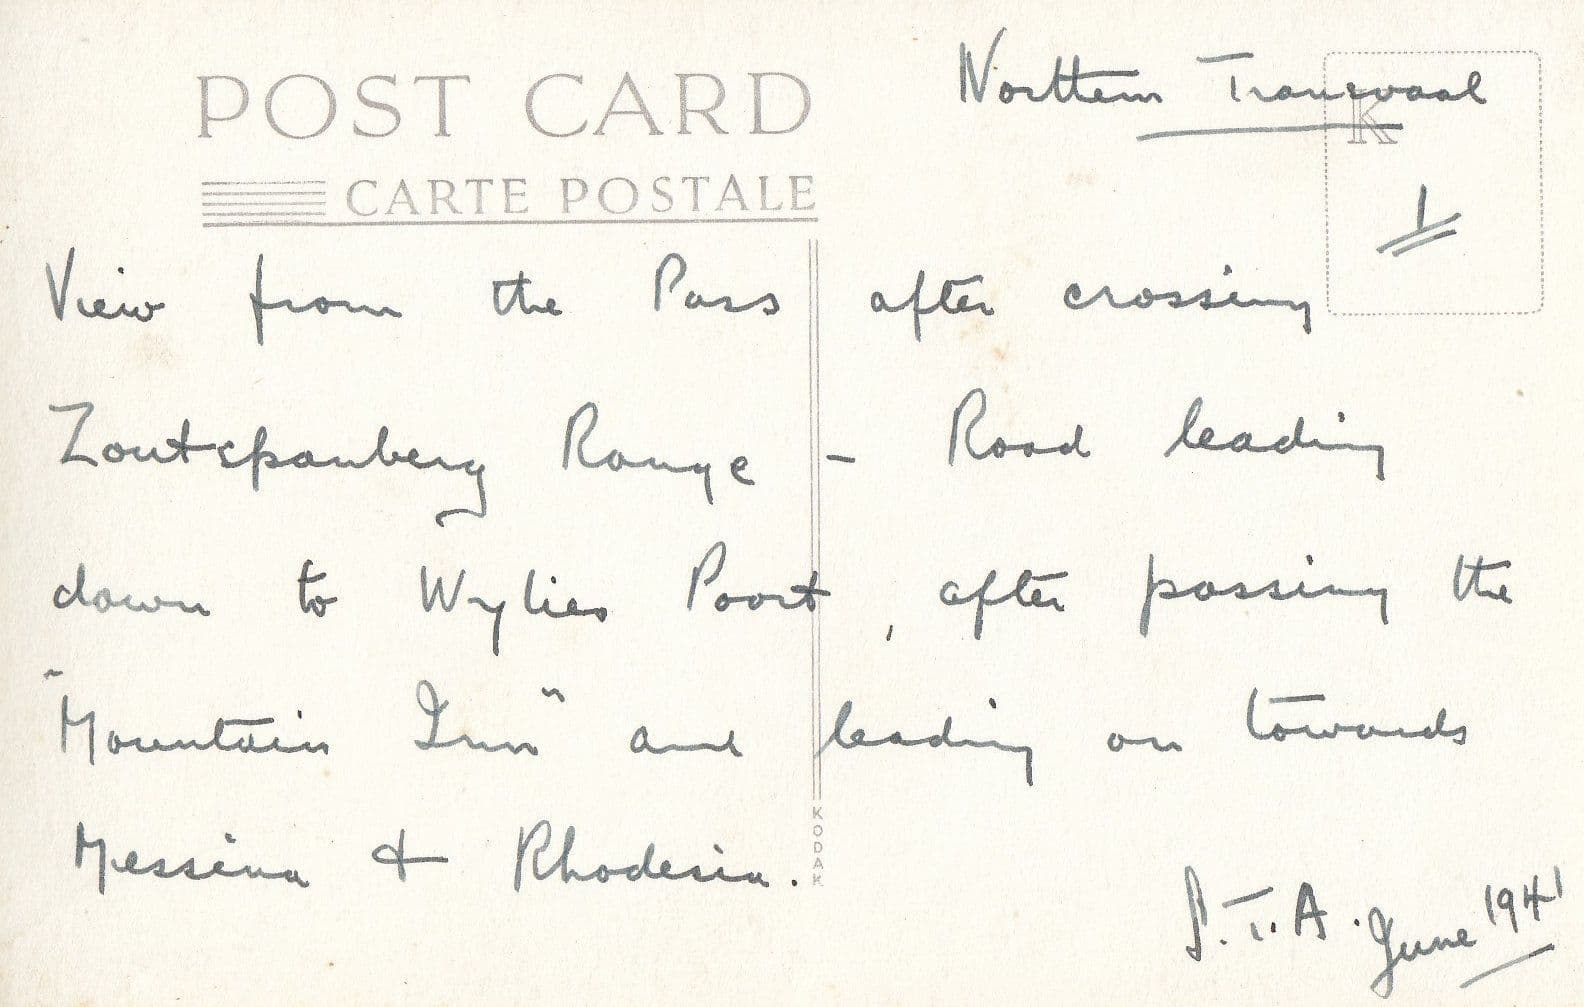 POST CARD
CARTE POSTALE
Northern Transvaal
K
1
View from the Pass after crossing
Zoutspanberg Range - Road leading
down to Wylies Poort, after passing the
"Mountain Inn" and leading on towards
Messina & Rhodesia.
KODAK
S.T.A. June 1941